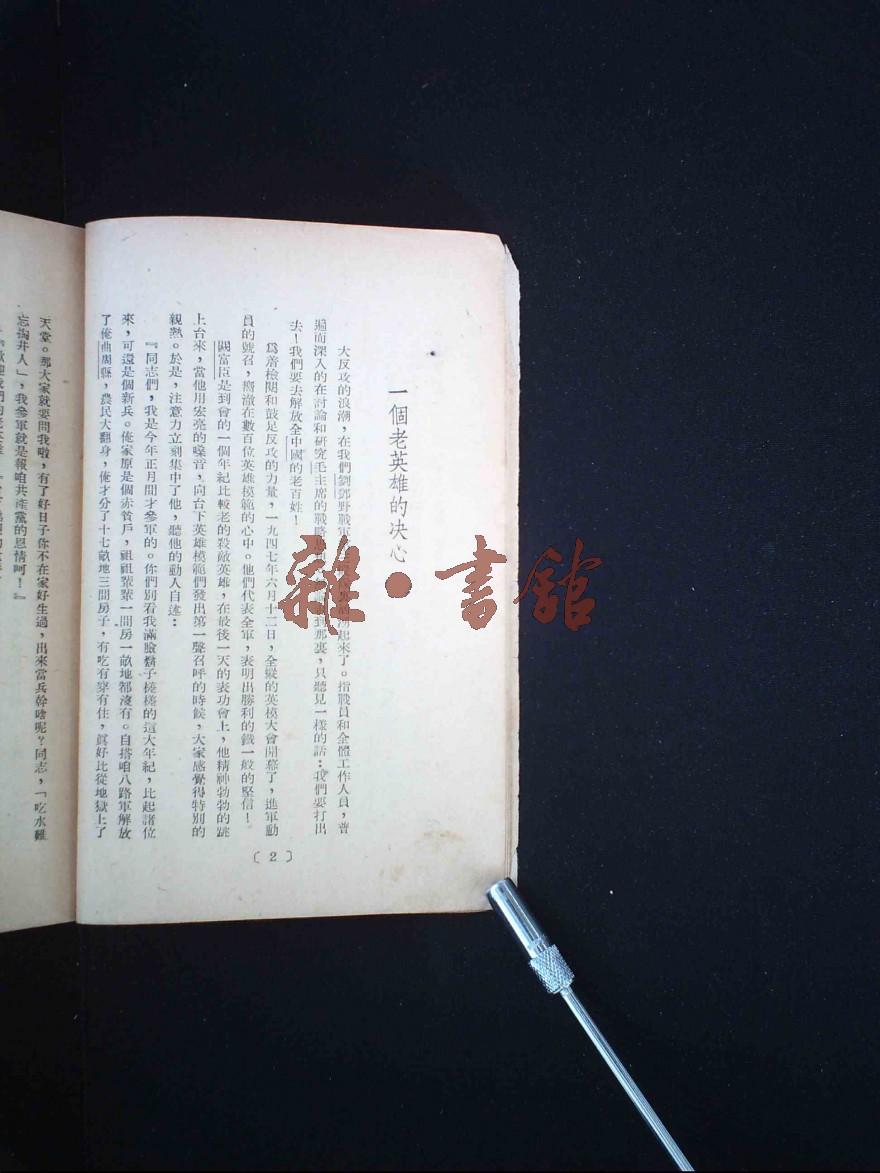 一個老英雄的决心
大反攻的浪潮，在我們劉鄧野戰軍
起來了。指戰員和全體工作人員，普
遍而深入的在討論和研究毛主席的戰略
到那裏，只聽見一樣的話：我們要打出
去！我們要去解放全中國的老百姓！
爲着檢閱和鼓足反攻的力量，一九四七年六月十二日，全縱的英模大會開幕了，進軍動
員的號召，響澈在數百位英雄模範的心中。他們代表全軍，表明出勝利的鐵一般的堅信！
閻富臣是到會的一個年紀比較老的殺敵英雄，在最後一天的表功會上，他精神勃勃的跳
上台來，當他用宏亮的嗓音，向台下英雄模範們發出第一聲召呼的時候，大家感覺得特別的
親熱。於是，注意力立刻集中了他，聽他的動人自述：
『同志們，我是今年正月間才參軍的。你們別看我滿臉鬍子楂楂的這大年紀，比起諸位
來，可還是個新兵。俺家原是個赤貧戶，祖祖輩輩一間房一畝地都沒有。自搭咱八路軍解放
了俺曲周縣，農民大翻身，俺才分了十七畝地三間房子，有吃有穿有住，眞好比從地獄上了
〔2〕
天堂。那大家就要問我啦，有了好日子你不在家好生過，出來當兵幹啥呢？同志，「吃水難
忘掏井人」，我參軍就是報咱共產黨的恩情呵！』
雜·書舘